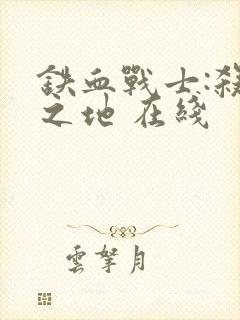 鉄血戰士:殺
之地 在綫
雲拏月